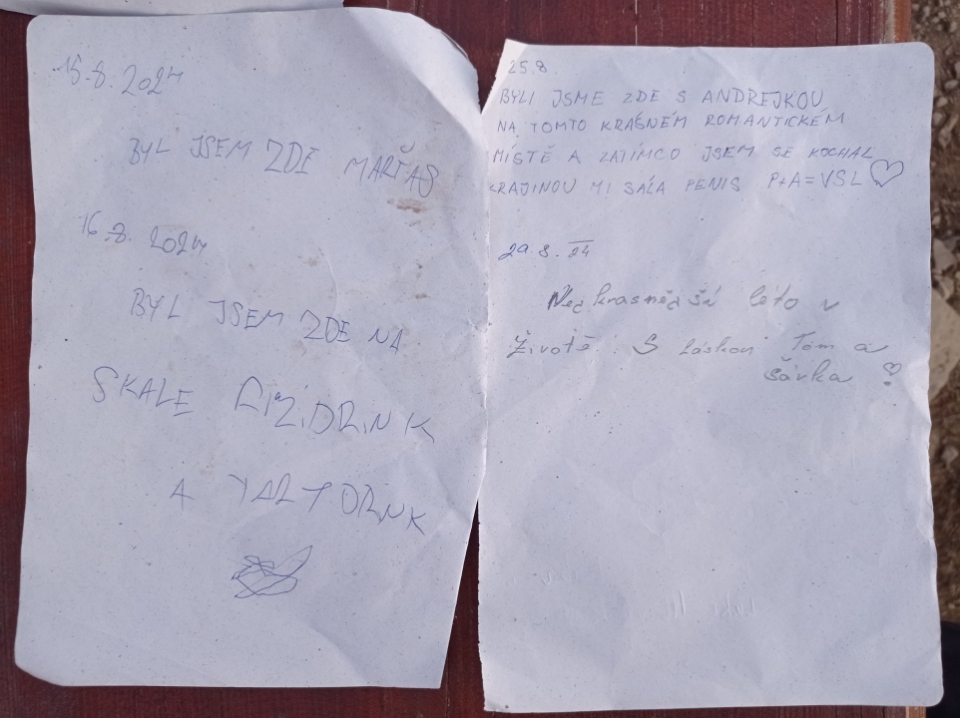 15.8.2024
BYL JSEM ZDE MARŤAS
16.8.2024
BYL JSEM ZDE NA
SKALE
A
25.8.
BYLI JSME ZDE S ANDREJKOU
NA TOMTO KRÁSNÉM ROMANTICKÉM
MÍSTĚ A ZATÍMCO JSEM SE KOCHAL
KRAJINOU MI SÁLA PENIS P+A=VSL ♡
29.8.24
Nejkrasnější léto v
Životě. S láskou Tom a
šárka